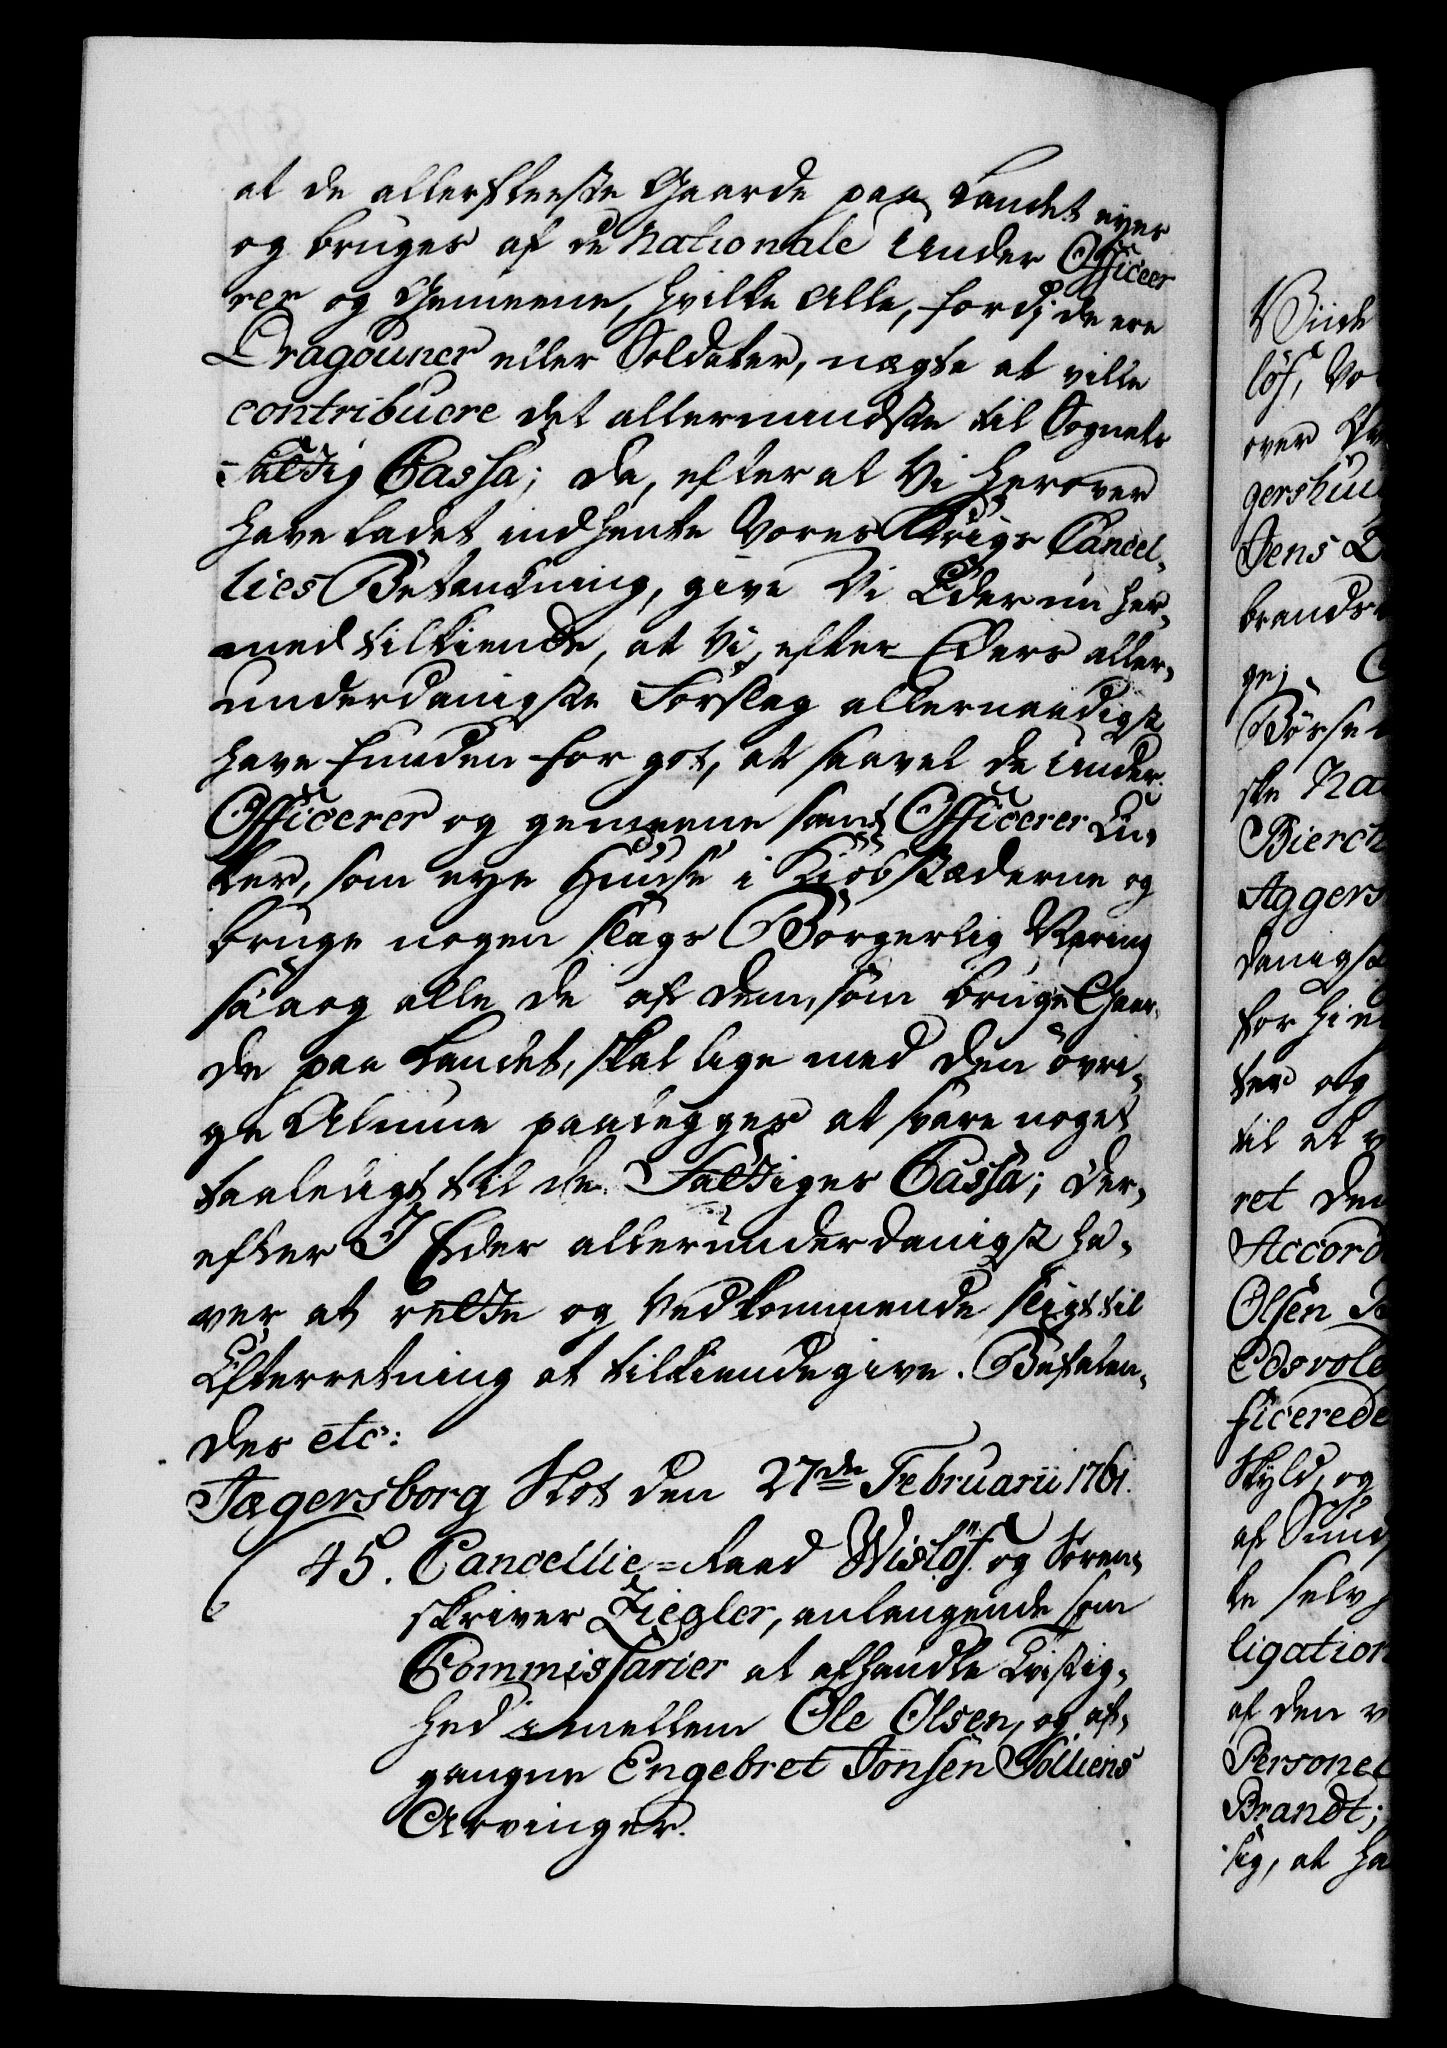 at de allerfleeste Gaarde paa Landet eyes
og bruges af de Nationale Under Officee-
rer og Gemeene, hvilke Alle, fordi de ere
Dragouner eller Soldater, nægte at ville
contribuere det allermindste til Sognets
Fattig Cassa; da, efter at Vi herover
have ladet indhente Vores Krigs Cancel-
lies Betænkning, give Vi Eder nu her-
med tilkiende, at Vi, efter Eders aller-
underdanigste Forslag allernaadigst
have funden for got, at saavel de Under
Officerer og gemeene samt Officerer En-
ker, som eye Huuse i Kiöbstæderne og
bruge nogen slags Borgerlig Næring
saa og alle de af dem, som bruge Gaar-
de paa Landet, skal lige med den övri-
ge Almue paalegges at svare noget
taaleligt til de Fattiges Cassa; der-
efter I Eder allerunderdanigst ha-
ver at rette og Vedkommende sligt til
Efterretning at tilkiendegive. Befalen-
des etc:
Jægersborg Slot den 27de Februarii 1761.
45. Cancellie-Raad Wislöf og Soren-
skriver Ziegler, anlangende som
Commissarier at afhandle Tvistig-
hed imellem Ole Olsen, og af-
gangne Engebret Jonsen Solliens
Arvinger.
löf, Vo
over
gershuu
Jens
brands
ge;
Börse
ske Na
Bierch
Aggers
danigst
for hie
ter og
til at v
ret den
Accord
Olsen
Eidsvold
ficerede
Skyld, og
af Sund
te selv
ligation
af den v
Personel
Brandt;
lig, at ha